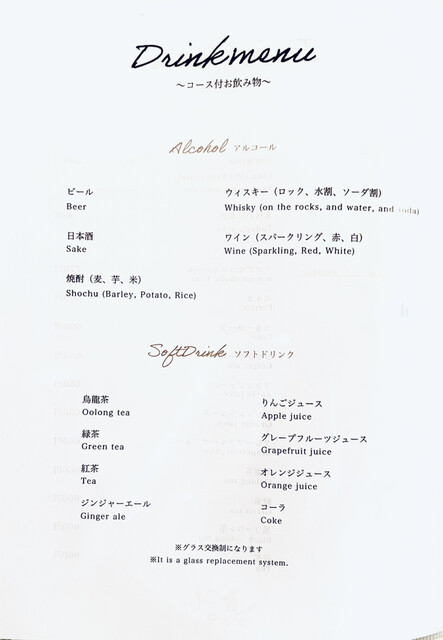 Drinkmenu
～コース付お飲み物～
Alcohol アルコール
ビール
Beer
ウィスキー（ロック、水割、ソーダ割）
Whisky (on the rocks, and water, and soda)
日本酒
Sake
ワイン（スパークリング、赤、白）
Wine (Sparkling, Red, White)
焼酎（麦、芋、米）
Shochu (Barley, Potato, Rice)
SoftDrink ソフトドリンク
烏龍茶
Oolong tea
りんごジュース
Apple juice
緑茶
Green tea
グレープフルーツジュース
Grapefruit juice
紅茶
Tea
オレンジジュース
Orange juice
ジンジャーエール
Ginger ale
コーラ
Coke
※グラス交換制になります
※It is a glass replacement system.